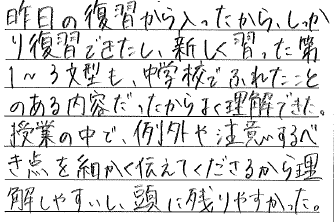 昨日の復習から入ったから、しっか
り復習できたし、新しく習った第
1~3文型も、中学校でふれたこと
のある内容だったからよく理解できた。
授業の中で、例外や注意するべ
き点を細かく伝えてくださるから理
解しやすいし、頭に残りやすかった。